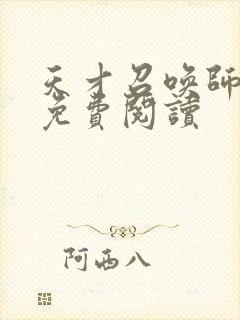 天才召喚師
免費閱讀
阿西八